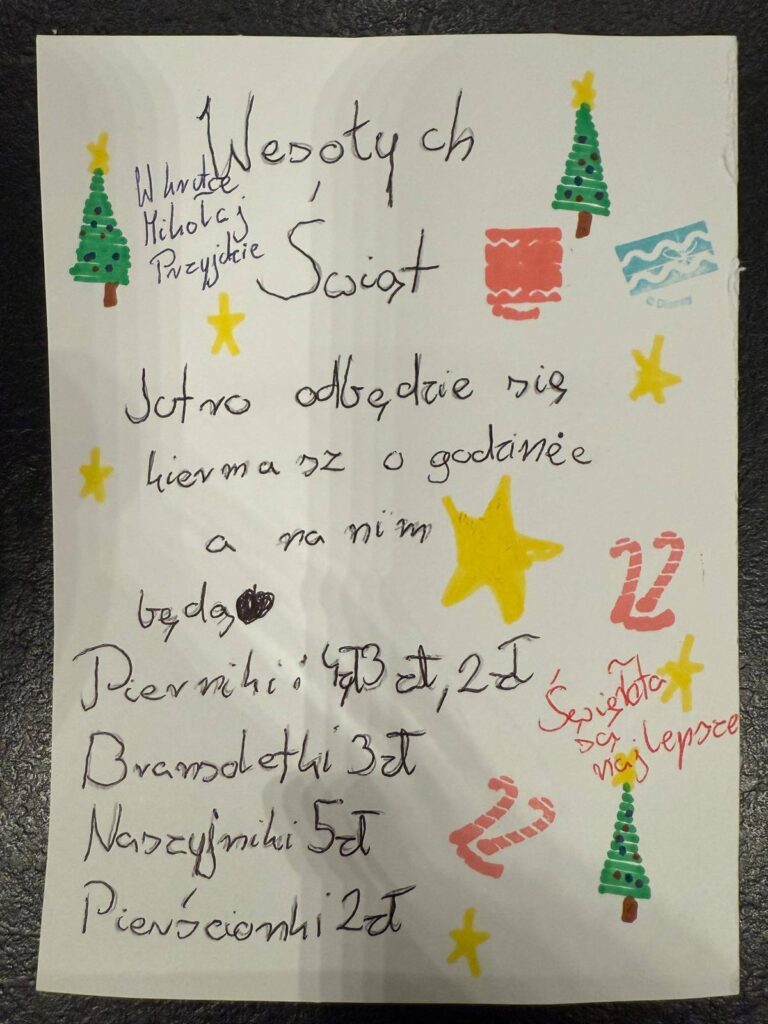 Wesołych
Świąt
Wkrótce
Mikołaj
Przyjdzie
Jutro odbędzie się
kiermasz o godzinėe
a na nim
będą
Pierniki : 4zł, 3 zł, 2zł
Bransoletki 3zł
Naszyjniki 5zł
Pierścionki 2zł
Święta
są
najlepsze
© Disney